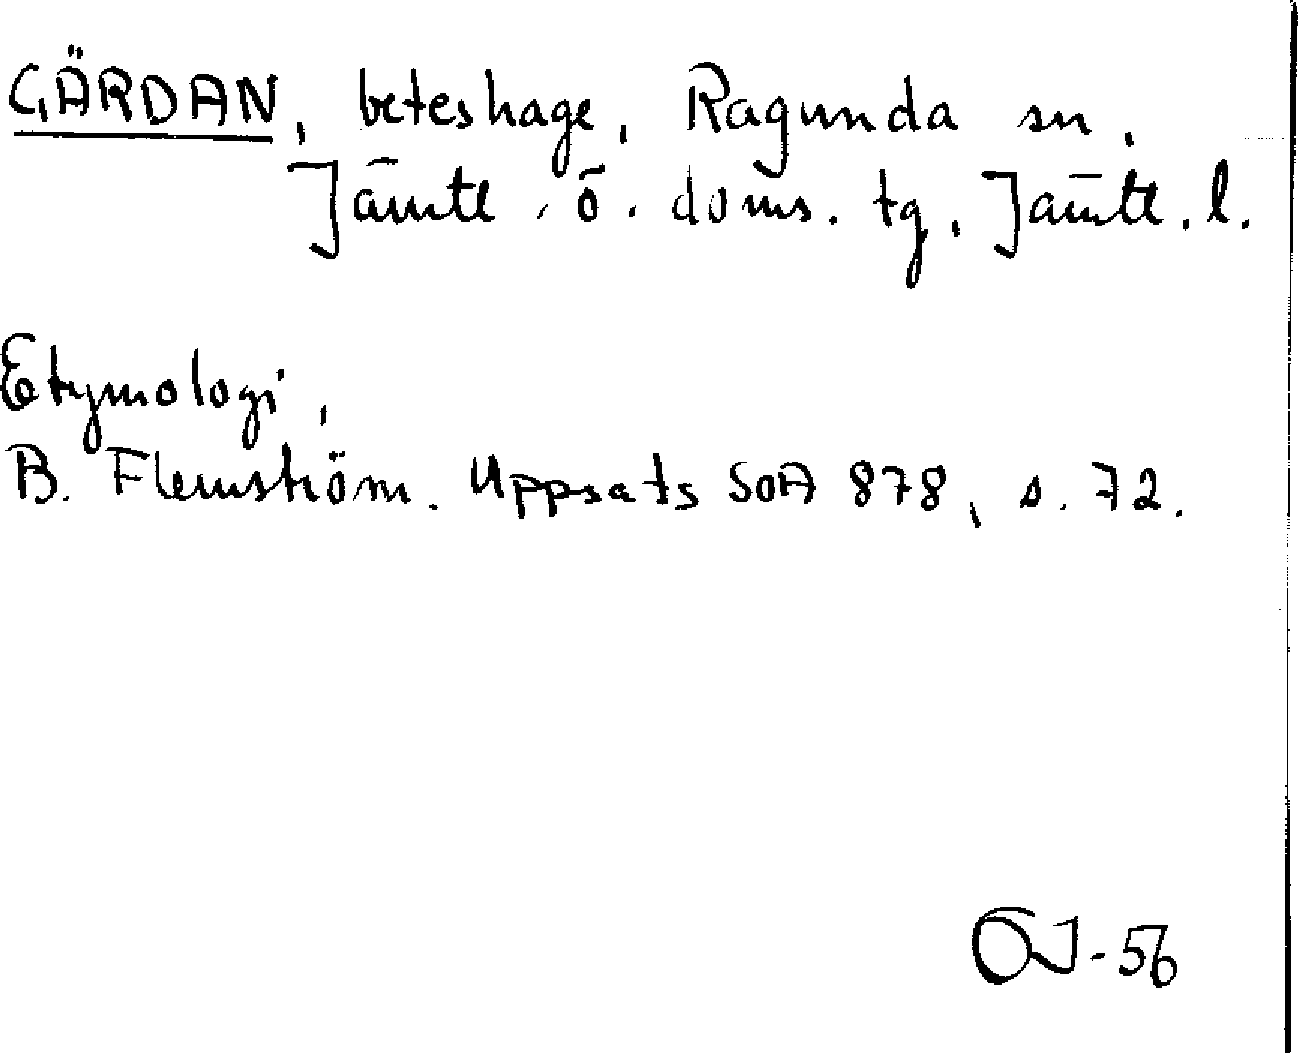 GÄRDAN, beteshage, Ragunda sn,
Jämtl. ö. doms. tg, Jämtl. l.
Etymologi,
B. Flemström. Uppsats SOA 878, s. 72.
ÖJ-56